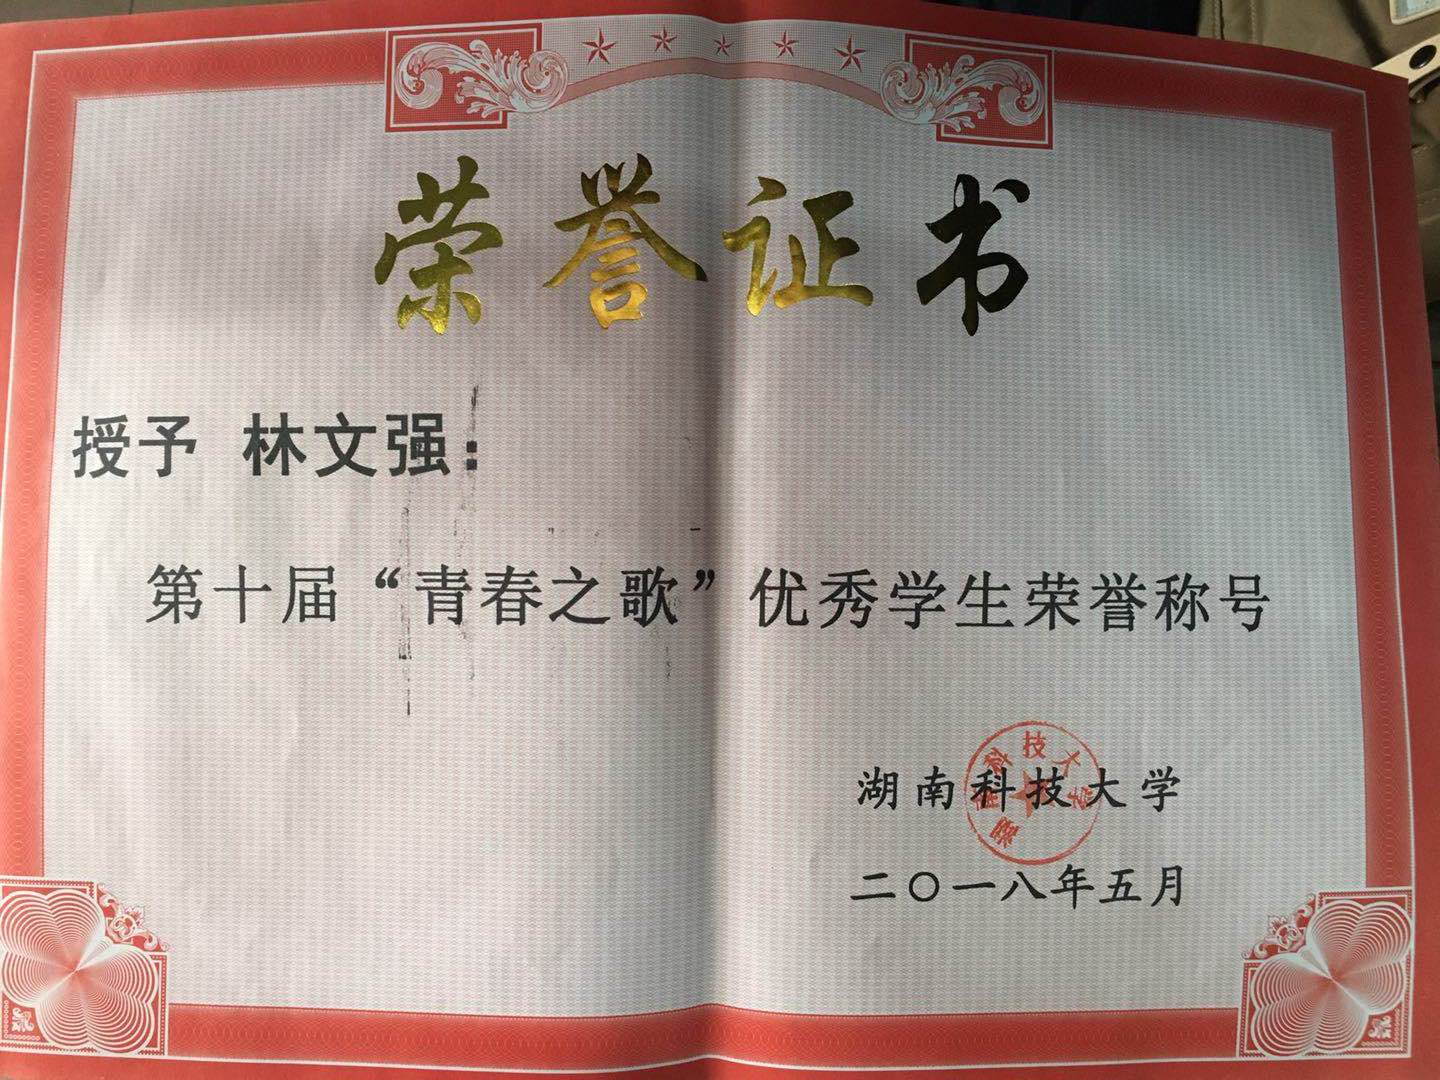 荣誉证书
授予 林文强：
第十届“青春之歌”优秀学生荣誉称号
湖南科技大学
湖南科技大学
二〇一八年五月